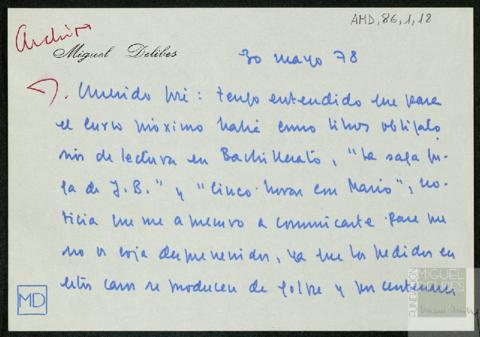 AMD, 86, 1, 18
Archivo
Miguel Delibes
30 mayo 78
Querido José: tengo entendido que para
el curso próximo habrá como libros obligato
rios de lectura en Bachillerato, "La saga fu-
ga de J.B." y "Cinco horas con Mario", no-
ticia que me apresuro a comunicarte para que
no os coja desprevenidos, ya que los pedidos en
estos casos se producen de golpe y por centenares
MD
FUNDACIÓN
MIGUEL
DELIBES